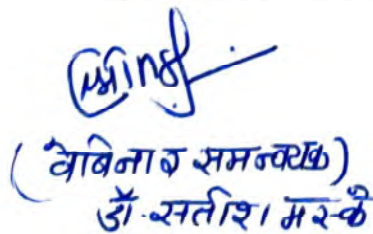 (वेबिनार समन्वयक)
डॉ. सतीश मस्के